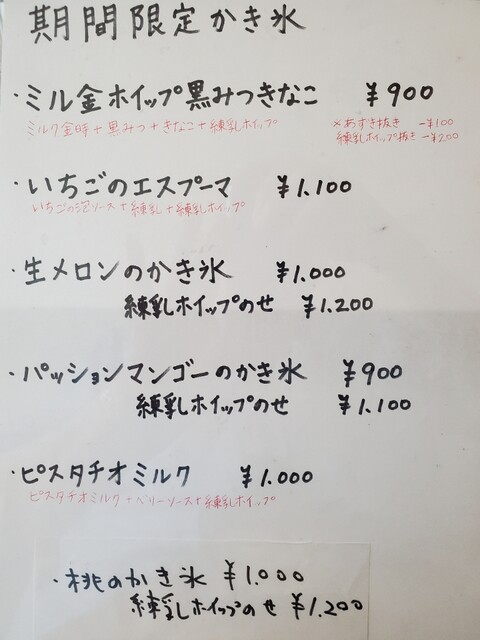 期間限定かき氷
・ミル金ホイップ黒みつきなこ ¥900
ミルク金時+黒みつ+きなこ+練乳ホイップ ※あずき抜き -¥100
練乳ホイップ抜き -¥200
・いちごのエスプーマ ¥1.100
いちごの泡ソース+練乳+練乳ホイップ
・生メロンのかき氷 ¥1.000
練乳ホイップのせ ¥1.200
・パッションマンゴーのかき氷 ¥900
練乳ホイップのせ ¥1.100
・ピスタチオミルク ¥1.000
ピスタチオミルク+ベリーソース+練乳ホイップ
・桃のかき氷 ¥1.000
練乳ホイップのせ ¥1.200